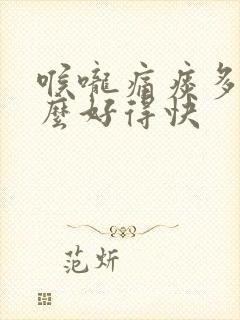 喉嚨痛痰多
麼好得快
范炘